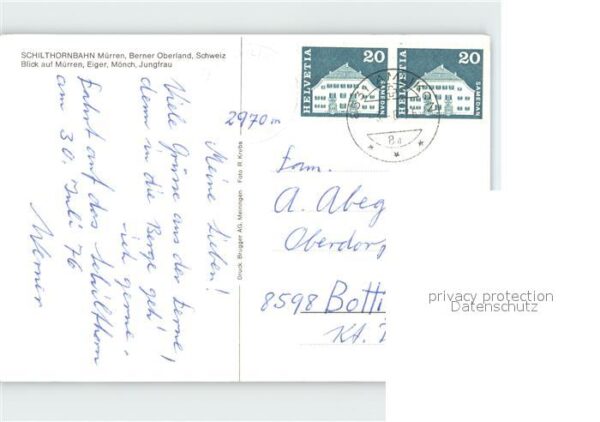 SCHILTHORNBAHN Mürren, Berner Oberland, Schweiz
Blick auf Mürren, Eiger, Mönch, Jungfrau
2970 m
Meine Lieben!
Viele Grüsse aus der Ferne,
denn in die Berge geh'
ich gerne.
Fahrt auf das Schilthorn
am 30. Juli 76
Werner
Druck Brugger AG, Meiringen Foto R. Krebs
HELVETIA 20 SAMEDAN
HELVETIA 20 SAMEDAN
Fam.
A. Abeg
Oberdorf
8598 Botti
Kt.
privacy protection
Datenschutz